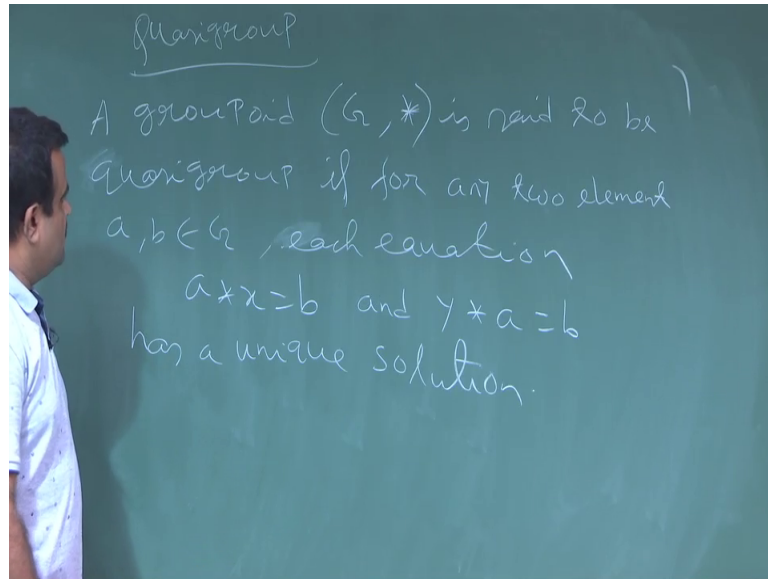 Quasigroup
A groupoid (G, *) is said to be
quasigroup if for any two element
a, b ∈ G, each equation
a * x = b and y * a = b
has a unique solution.